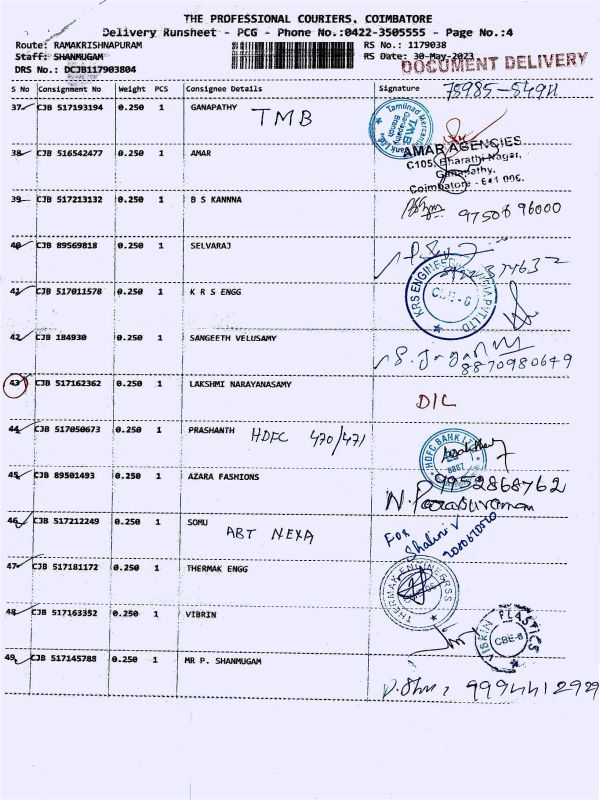 THE PROFESSIONAL COURIERS, COIMBATORE
Delivery Runsheet - PCG - Phone No.:0422-3505555 - Page No.:4
Route: RAMAKRISHNAPURAM RS No.: 1179038
Staff: SHANMUGAM RS Date: 30-May-2023
DOCUMENT DELIVERY
DRS No.: DCJB117903804
S No Consignment No Weight PCS Consignee Details Signature
37 CJB 517193194 0.250 1 GANAPATHY TMB
Tamilnad Mercantile Bank Ltd. TMB Ganapathy Branch
38 CJB 516542477 0.250 1 AMAR
AMAR AGENCIES
C105, Bharathi Nagar,
Ganapathy,
Coimbatore - 641 006.
39 CJB 517213132 0.250 1 B S KANNNA 97508 96000
40 CJB 89569818 0.250 1 SELVARAJ
41 CJB 517011578 0.250 1 K R S ENGG
KRS ENGINEERING PVT LTD CBE-6
42 CJB 184930 0.250 1 SANGEETH VELUSAMY
S. Jagan
8870980649
43 CJB 517162362 0.250 1 LAKSHMI NARAYANASAMY
D/L
44 CJB 517050673 0.250 1 PRASHANTH HDFC 470/471
HDFC BANK LTD
45 CJB 89501493 0.250 1 AZARA FASHIONS
9952868762
46 CJB 517212249 0.250 1 SOMU
ABT NEXA
For Shalini V
47 CJB 517181172 0.250 1 THERMAK ENGG
THERMAK
48 CJB 517163352 0.250 1 VIBRIN
VIBRIN PLASTICS CBE-6
49 CJB 517145788 0.250 1 MR P. SHANMUGAM
9994412929